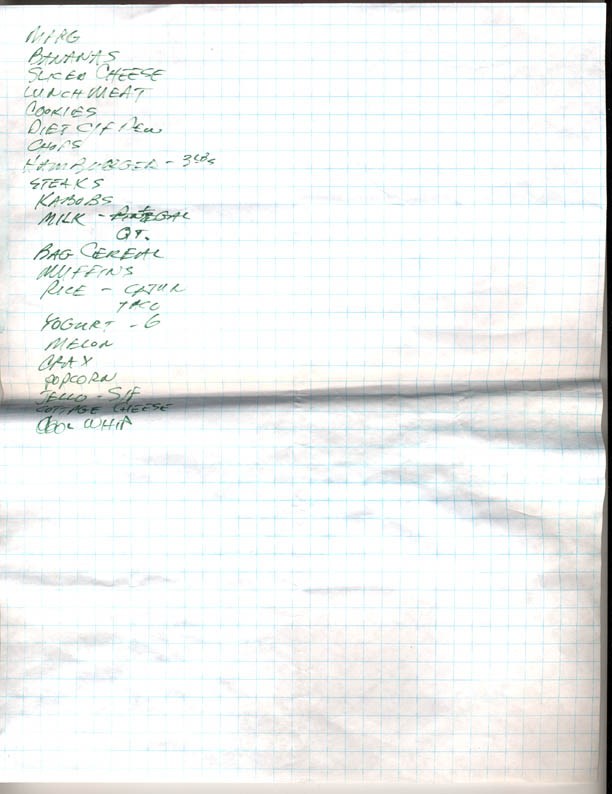 MARG
BANANAS
SLICED CHEESE
LUNCHMEAT
COOKIES
DIET C/F DEW
CHOPS
HAMBURGER - 3 LBS
STEAKS
KABOBS
MILK - GAL
QT.
BAG CEREAL
MUFFINS
RICE - CAJUN
TACO
YOGURT - 6
MELON
CRAX
POPCORN
JELLO - S/F
COTTAGE CHEESE
COOL WHIP